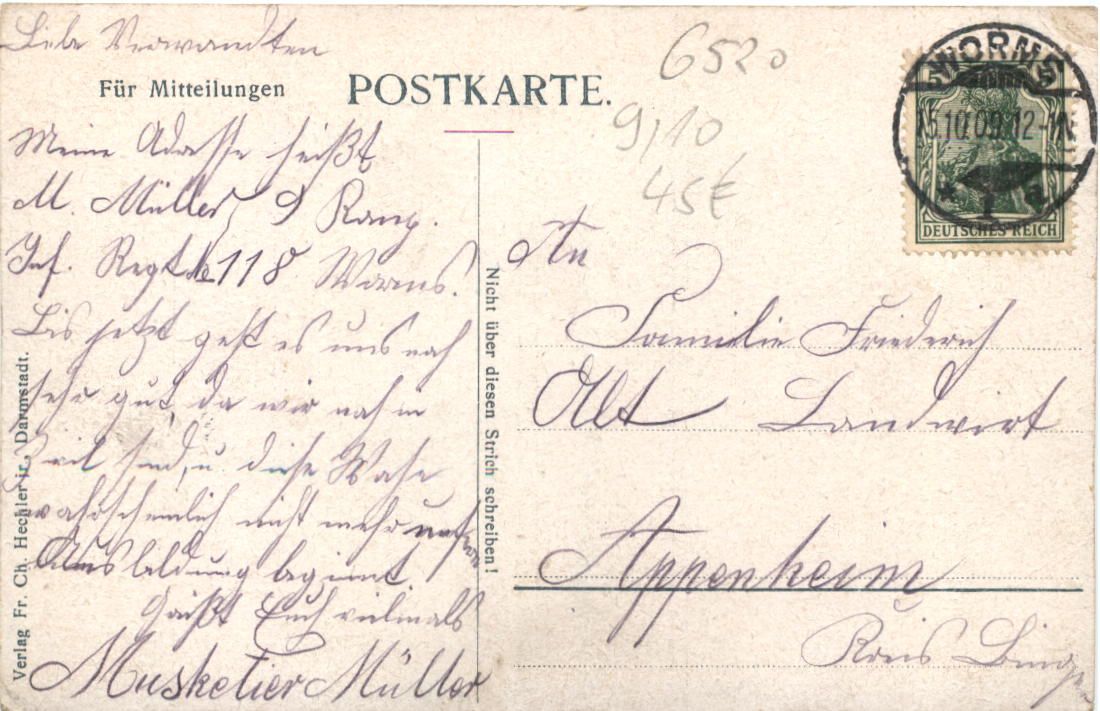 Liebe Verwandten
Für Mitteilungen
POSTKARTE.
6520
9/10
45€
WORMS
15.10.09.12-1N.
1
5 5
DEUTSCHES REICH
Meine Adresse heißt
M. Müller, 9 Komp.
Inf. Regt № 118 Worms.
Bis jetzt geht es uns noch
sehr gut, da wir noch in
Zivil sind, u. diese Woche
wahrscheinlich nicht mehr unsere
Ausbildung beginnt.
Grüßt Euch vielmals
Musketier Müller
Verlag Fr. Ch. Hechler jr., Darmstadt.
Nicht über diesen Strich schreiben!
An
Familie Friedrich
Alt Landwirt
Appenheim
Kreis Bingen